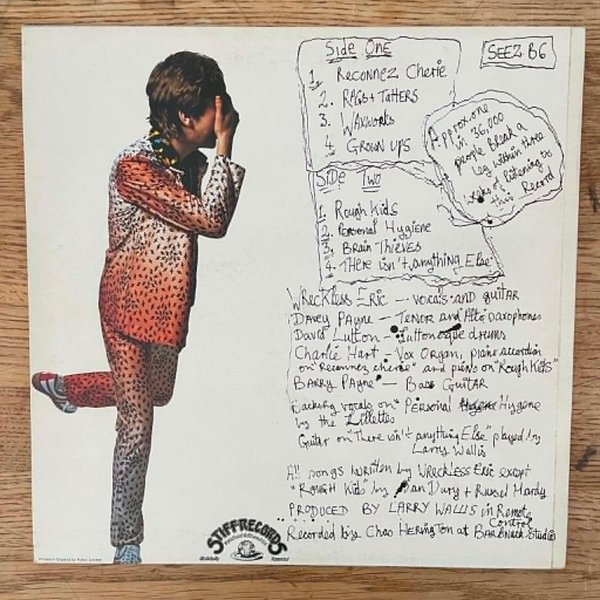 Side One
1. Reconnez Cherie
2. Rags + Tatters
3. Waxworks
4. Grown ups
SEEZ B6
Approx. one
in 36,000
people break a
leg within three
weeks of listening to
this Record
Side Two
1. Rough Kids
2. Personal Hygiene
3. Brain Thieves
4. There isn't anything Else
Wreckless Eric — vocals and guitar
Davey Payne — Tenor and Alto saxophones
David Lutton — Suttonesque drums
Charlie Hart — Vox Organ, piano accordion
on "Reconnez cherie" and piano on "Rough Kids"
Barry Payne — Bass Guitar
Backing vocals on "Personal Hygene"
by the Lillettes
Guitar on "There isn't anything Else" played by
Larry Wallis
All songs written by Wreckless Eric except
"Rough Kids" by Ian Dury + Russel Hardy
PRODUCED BY LARRY WALLIS in Remote
Control
Recorded by Chas Herington at Barbnack Studios
STIFF RECORDS